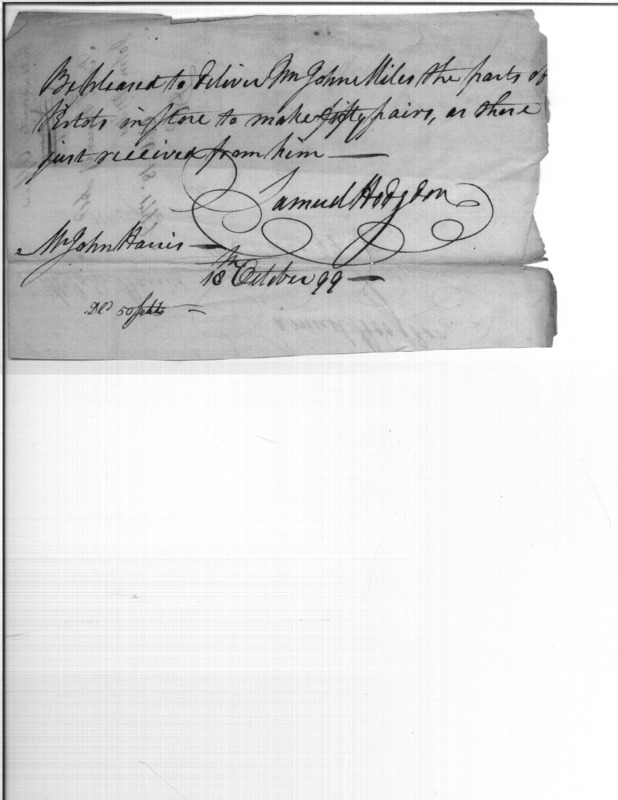 Be pleased to deliver Mr John Miles the parts of
Pistols in store to make fifty pairs, as those
just received from him —
Samuel Hodgdon
Mr John Harris —
18th October 99 —
Dd 50 setts —